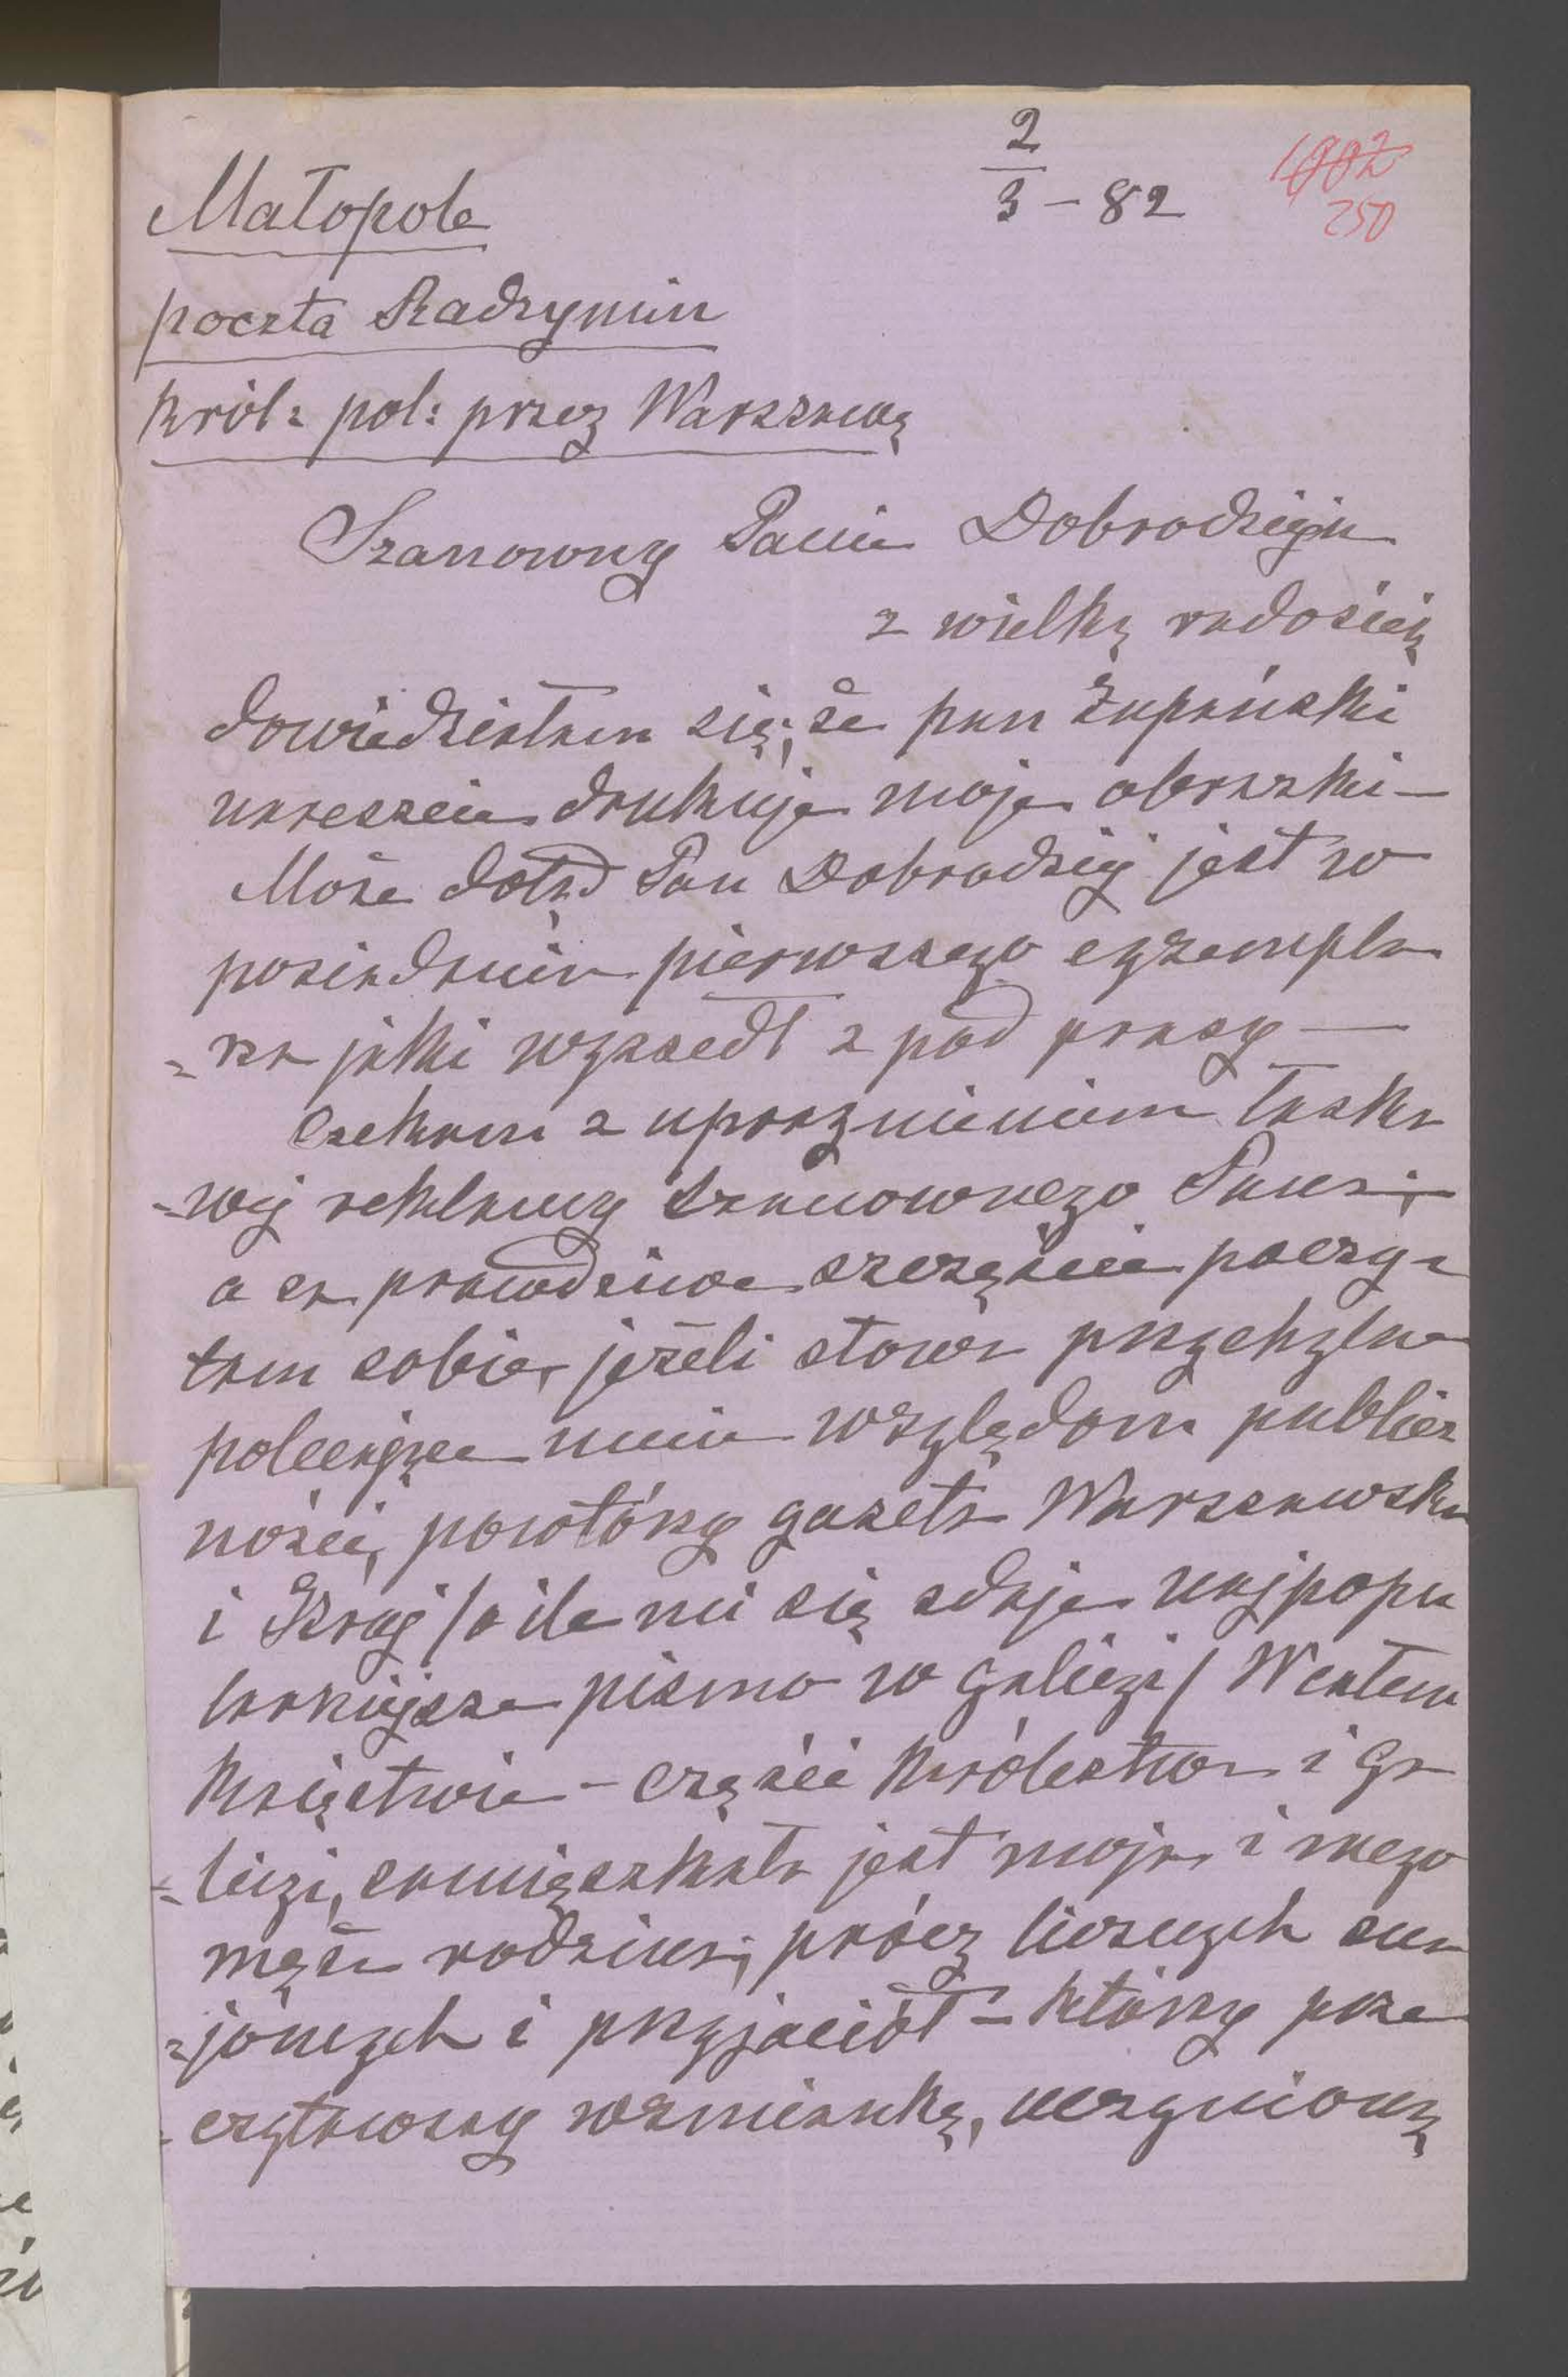 2/3 – 82
1002
250
Małopole
poczta Radzymin
Król: pol: przez Warszawę
Szanowny Panie Dobrodzieju
z wielką radością
dowiedziałam się, że pan Żupański
nareszcie drukuje moje obrazki –
Może dotąd Pan Dobrodziej jest w
posiadaniu pierwszego egzempla
=rza jaki wyszedł z pod prasy –
Czekam z upragnieniem łaska
=wej reklamy szanownego Pana;
a za prawdziwe szczęście poczy=
tam sobie, jeżeli słowa przychylne
polecające mnie względom publicz
ności, powtórzy gazeta Warszawska
i Kraj /o ile mi się zdaje najpopu
larniejsze pismo w Galicyi/ W całem
Księstwie – części Królestwa i Ga
=licyi, zamięszkała jest moja i mego
męża rodzina; prócz licznych zna
=jómych i przyjaciół – którzy prze
=czytawszy wzmiankę, uczynioną